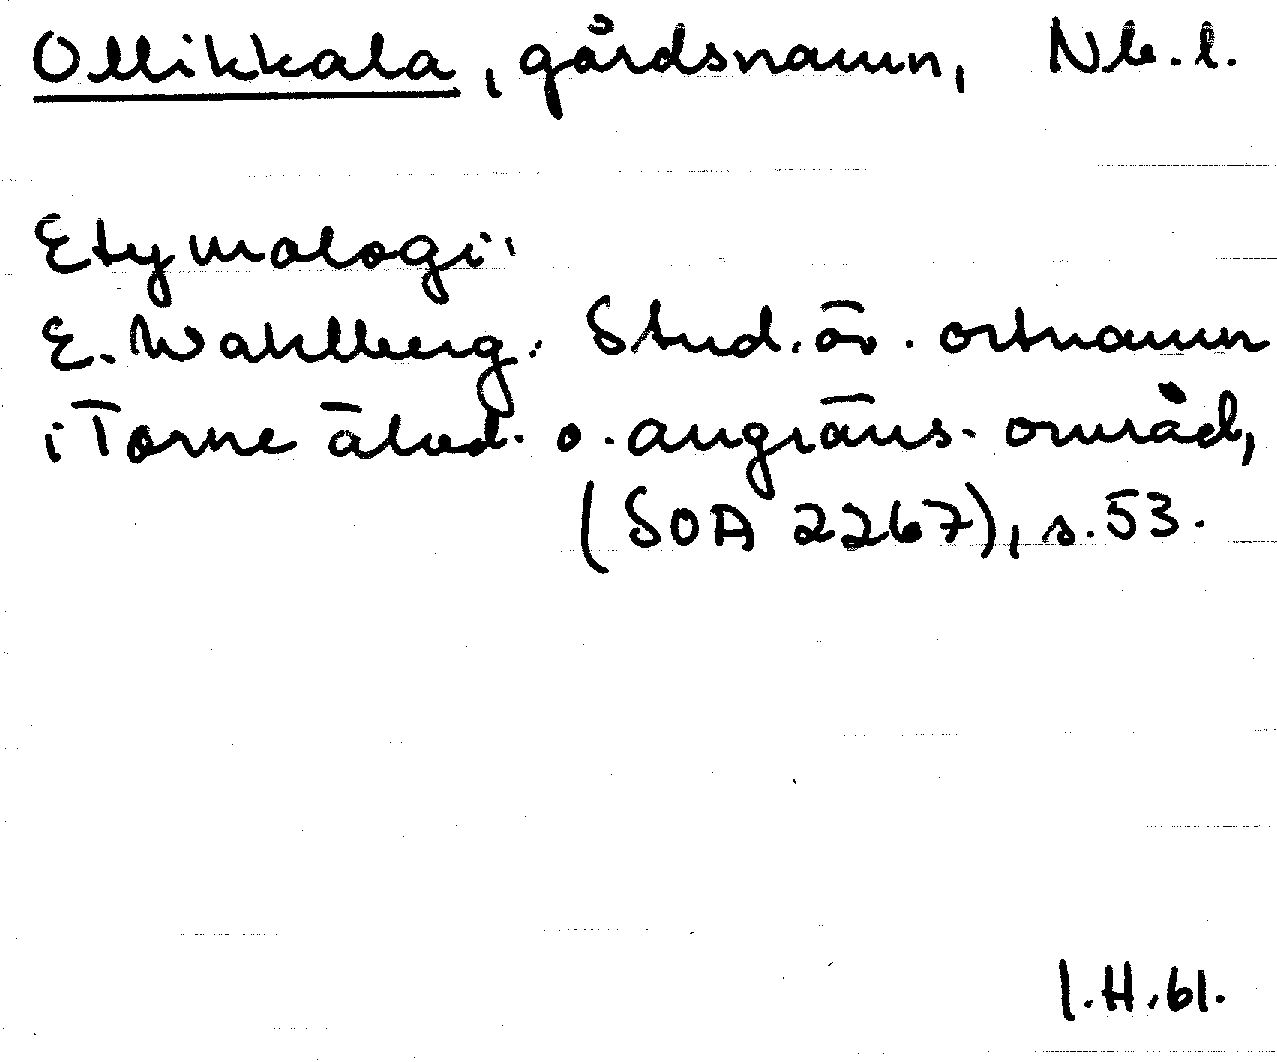 Ollikkala, gårdsnamn, Nb.l.
Etymologi:
E. Wahlberg: Stud. öv. ortnamn
i Torne älvd. o. angräns. områd,
(SOA 2267), s. 53.
I.H.61.